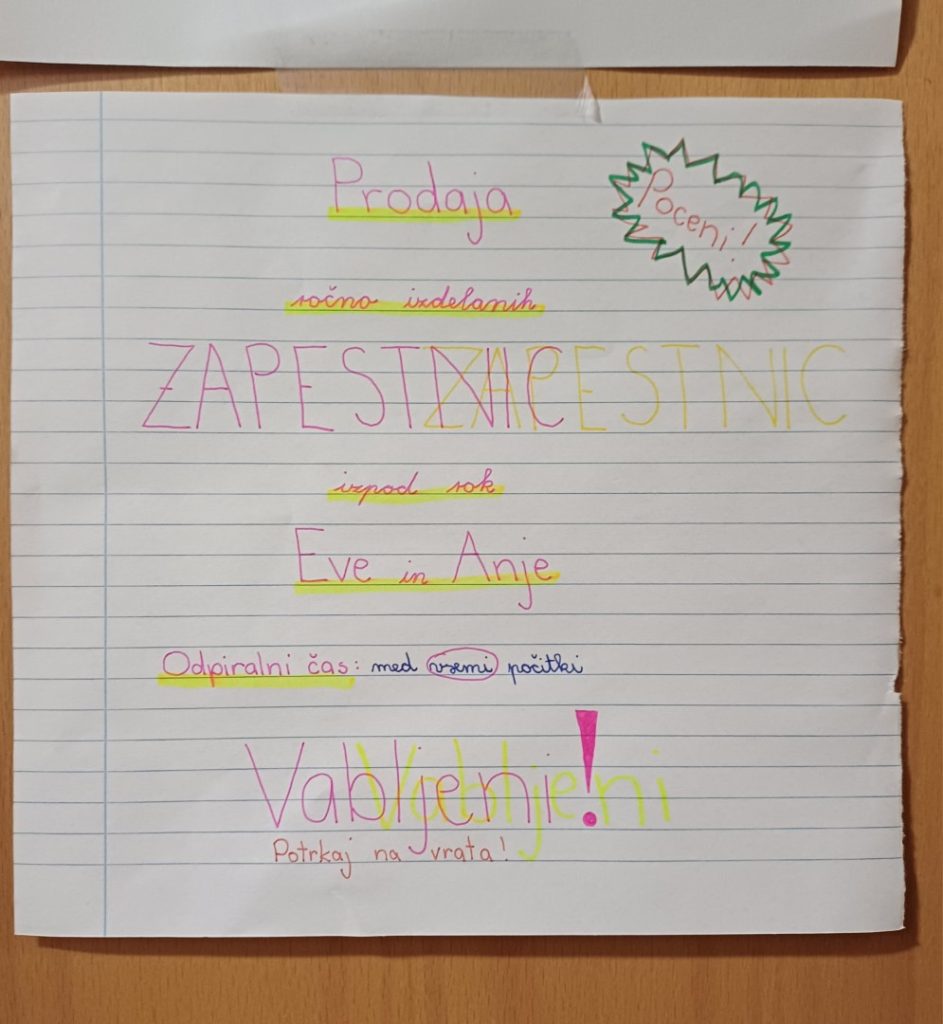 Prodaja
Poceni!
ročno izdelanih
ZAPESTNIC
ZAPESTNIC
izpod rok
Eve in Anje
Odpiralni čas: med vsemi počitki
Vabljeni!
Vabljeni
Potrkaj na vrata!